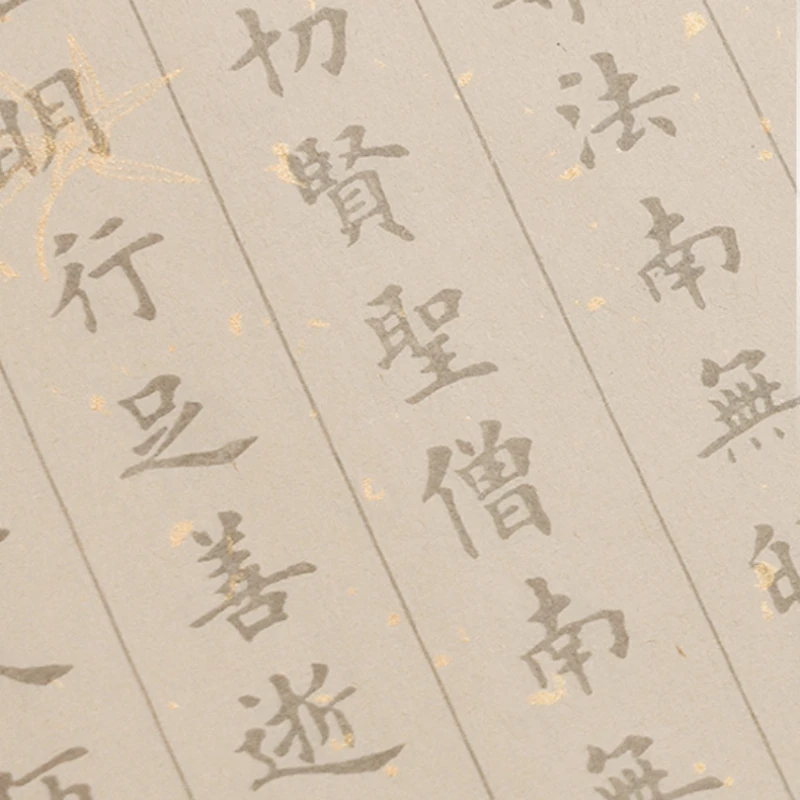 法南無
切賢聖僧南無
明行足善逝